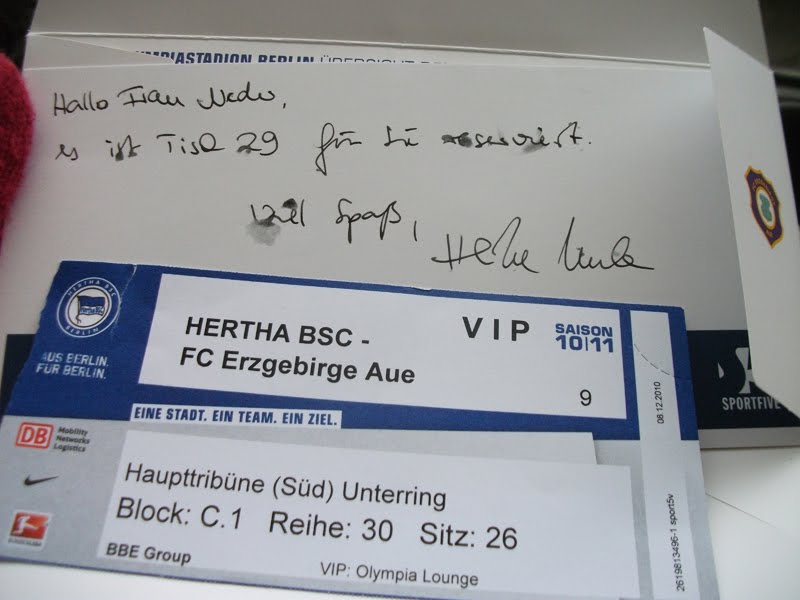 OLYMPIASTADION BERLIN ÜBERSICHT
Hallo Frau
es ist Tisch 29 für Sie reserviert.
Viel Spaß,
HERTHA BSC
BERLIN
Hertha BSC
AUS BERLIN.
FÜR BERLIN.
HERTHA BSC -
FC Erzgebirge Aue
VIP
SAISON
10|11
9
EINE STADT. EIN TEAM. EIN ZIEL.
DB
Mobility
Networks
Logistics
Haupttribüne (Süd) Unterring
Block: C.1 Reihe: 30 Sitz: 26
BBE Group
VIP: Olympia Lounge
BUNDESLIGA
08.12.2010
2619813496-1 sport5v
SPORTFIVE